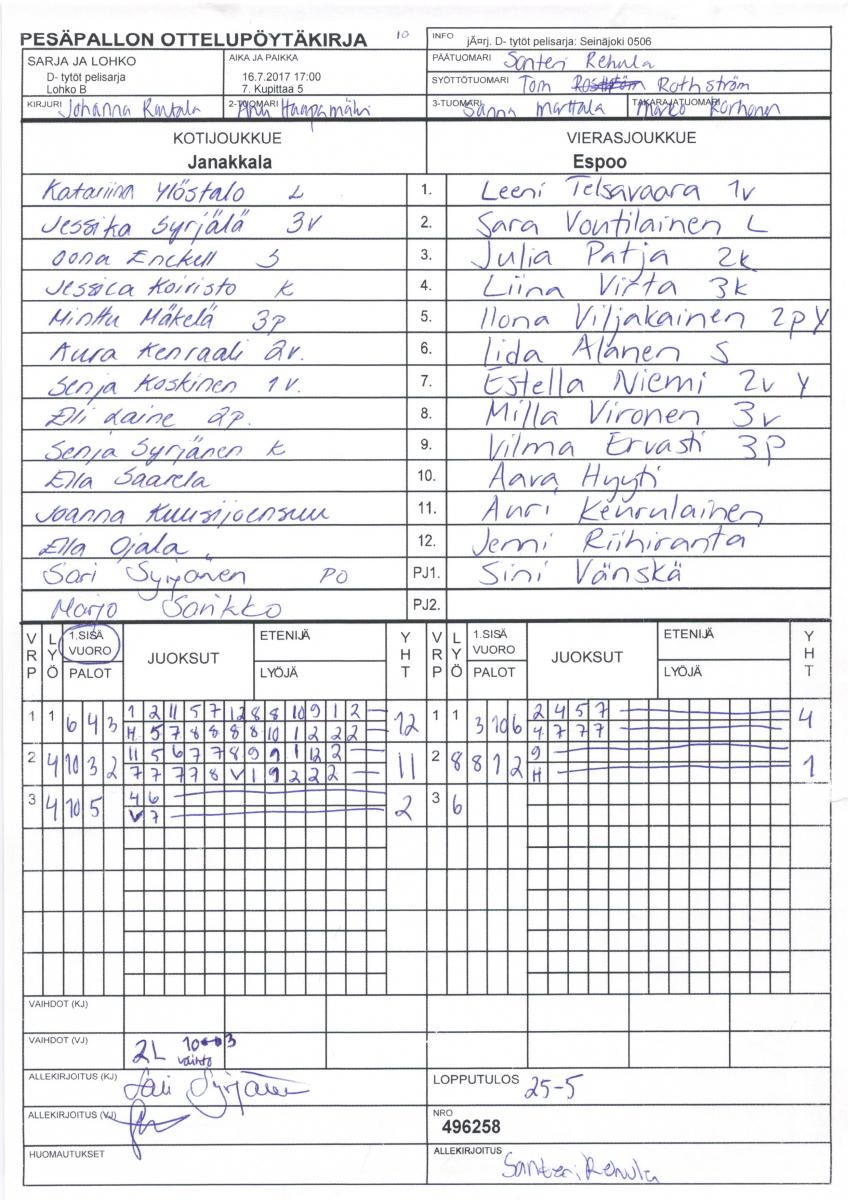 PESÄPALLON OTTELUPÖYTÄKIRJA 10
INFO jÃ¤rj. D- tytöt pelisarja: Seinäjoki 0506
SARJA JA LOHKO
D- tytöt pelisarja
Lohko B
AIKA JA PAIKKA
16.7.2017 17:00
7. Kupittaa 5
PÄÄTUOMARI Santeri Rehula
SYÖTTÖTUOMARI Tom Rothström
KIRJURI Johanna Rantala
2-TUOMARI Anu Haapamäki
3-TUOMARI Sanna Marttala
TAKARAJATUOMARI Marko Korhonen
KOTIJOUKKUE VIERASJOUKKUE
Janakkala Espoo
Katariina Ylöstalo L 1. Leeni Telsavaara 1v
Jessika Syrjälä 3v 2. Sara Voutilainen L
Oona Enckell S 3. Julia Patja 2k
Jessica Koivisto K 4. Liina Virta 3k
Minttu Mäkelä 3p 5. Ilona Viljakainen 2p Y
Aura Kenraali 2v. 6. Iida Alanen S
Senja Koskinen 1v. 7. Estella Niemi 2v Y
Elli Laine 2p. 8. Milla Vironen 3v
Senja Syrjänen K 9. Vilma Ervasti 3p
Ella Saarela 10. Aava Hyyti
Joanna Kuusijoensuu 11. Auri Keurulainen
Ella Ojala 12. Jenni Riihiranta
Sari Syrjänen PO PJ1. Sini Vänskä
Marjo Sorikko PJ2.
VRP LYÖ 1.SISÄ VUORO PALOT JUOKSUT ETENIJÄ LYÖJÄ YHT VRP LYÖ 1.SISÄ VUORO PALOT JUOKSUT ETENIJÄ LYÖJÄ YHT
1 1 6 4 3 1 2 11 5 7 12 8 8 10 9 1 2 12 1 1 3 10 6 2 4 5 7 4
H 5 7 8 8 8 8 10 1 2 2 2 4 7 7 7
2 4 10 3 2 11 5 6 7 7 8 9 9 1 12 2 11 2 8 8 1 2 9 1
7 7 7 7 8 V 1 9 2 2 2 H
3 4 10 5 4 6 2 3 6
V 7
VAIHDOT (KJ)
VAIHDOT (VJ) 2L 10↔3
vaihto
ALLEKIRJOITUS (KJ) Sari Syrjänen
LOPPUTULOS 25-5
ALLEKIRJOITUS (VJ)
NRO
496258
HUOMAUTUKSET
ALLEKIRJOITUS Santeri Rehula